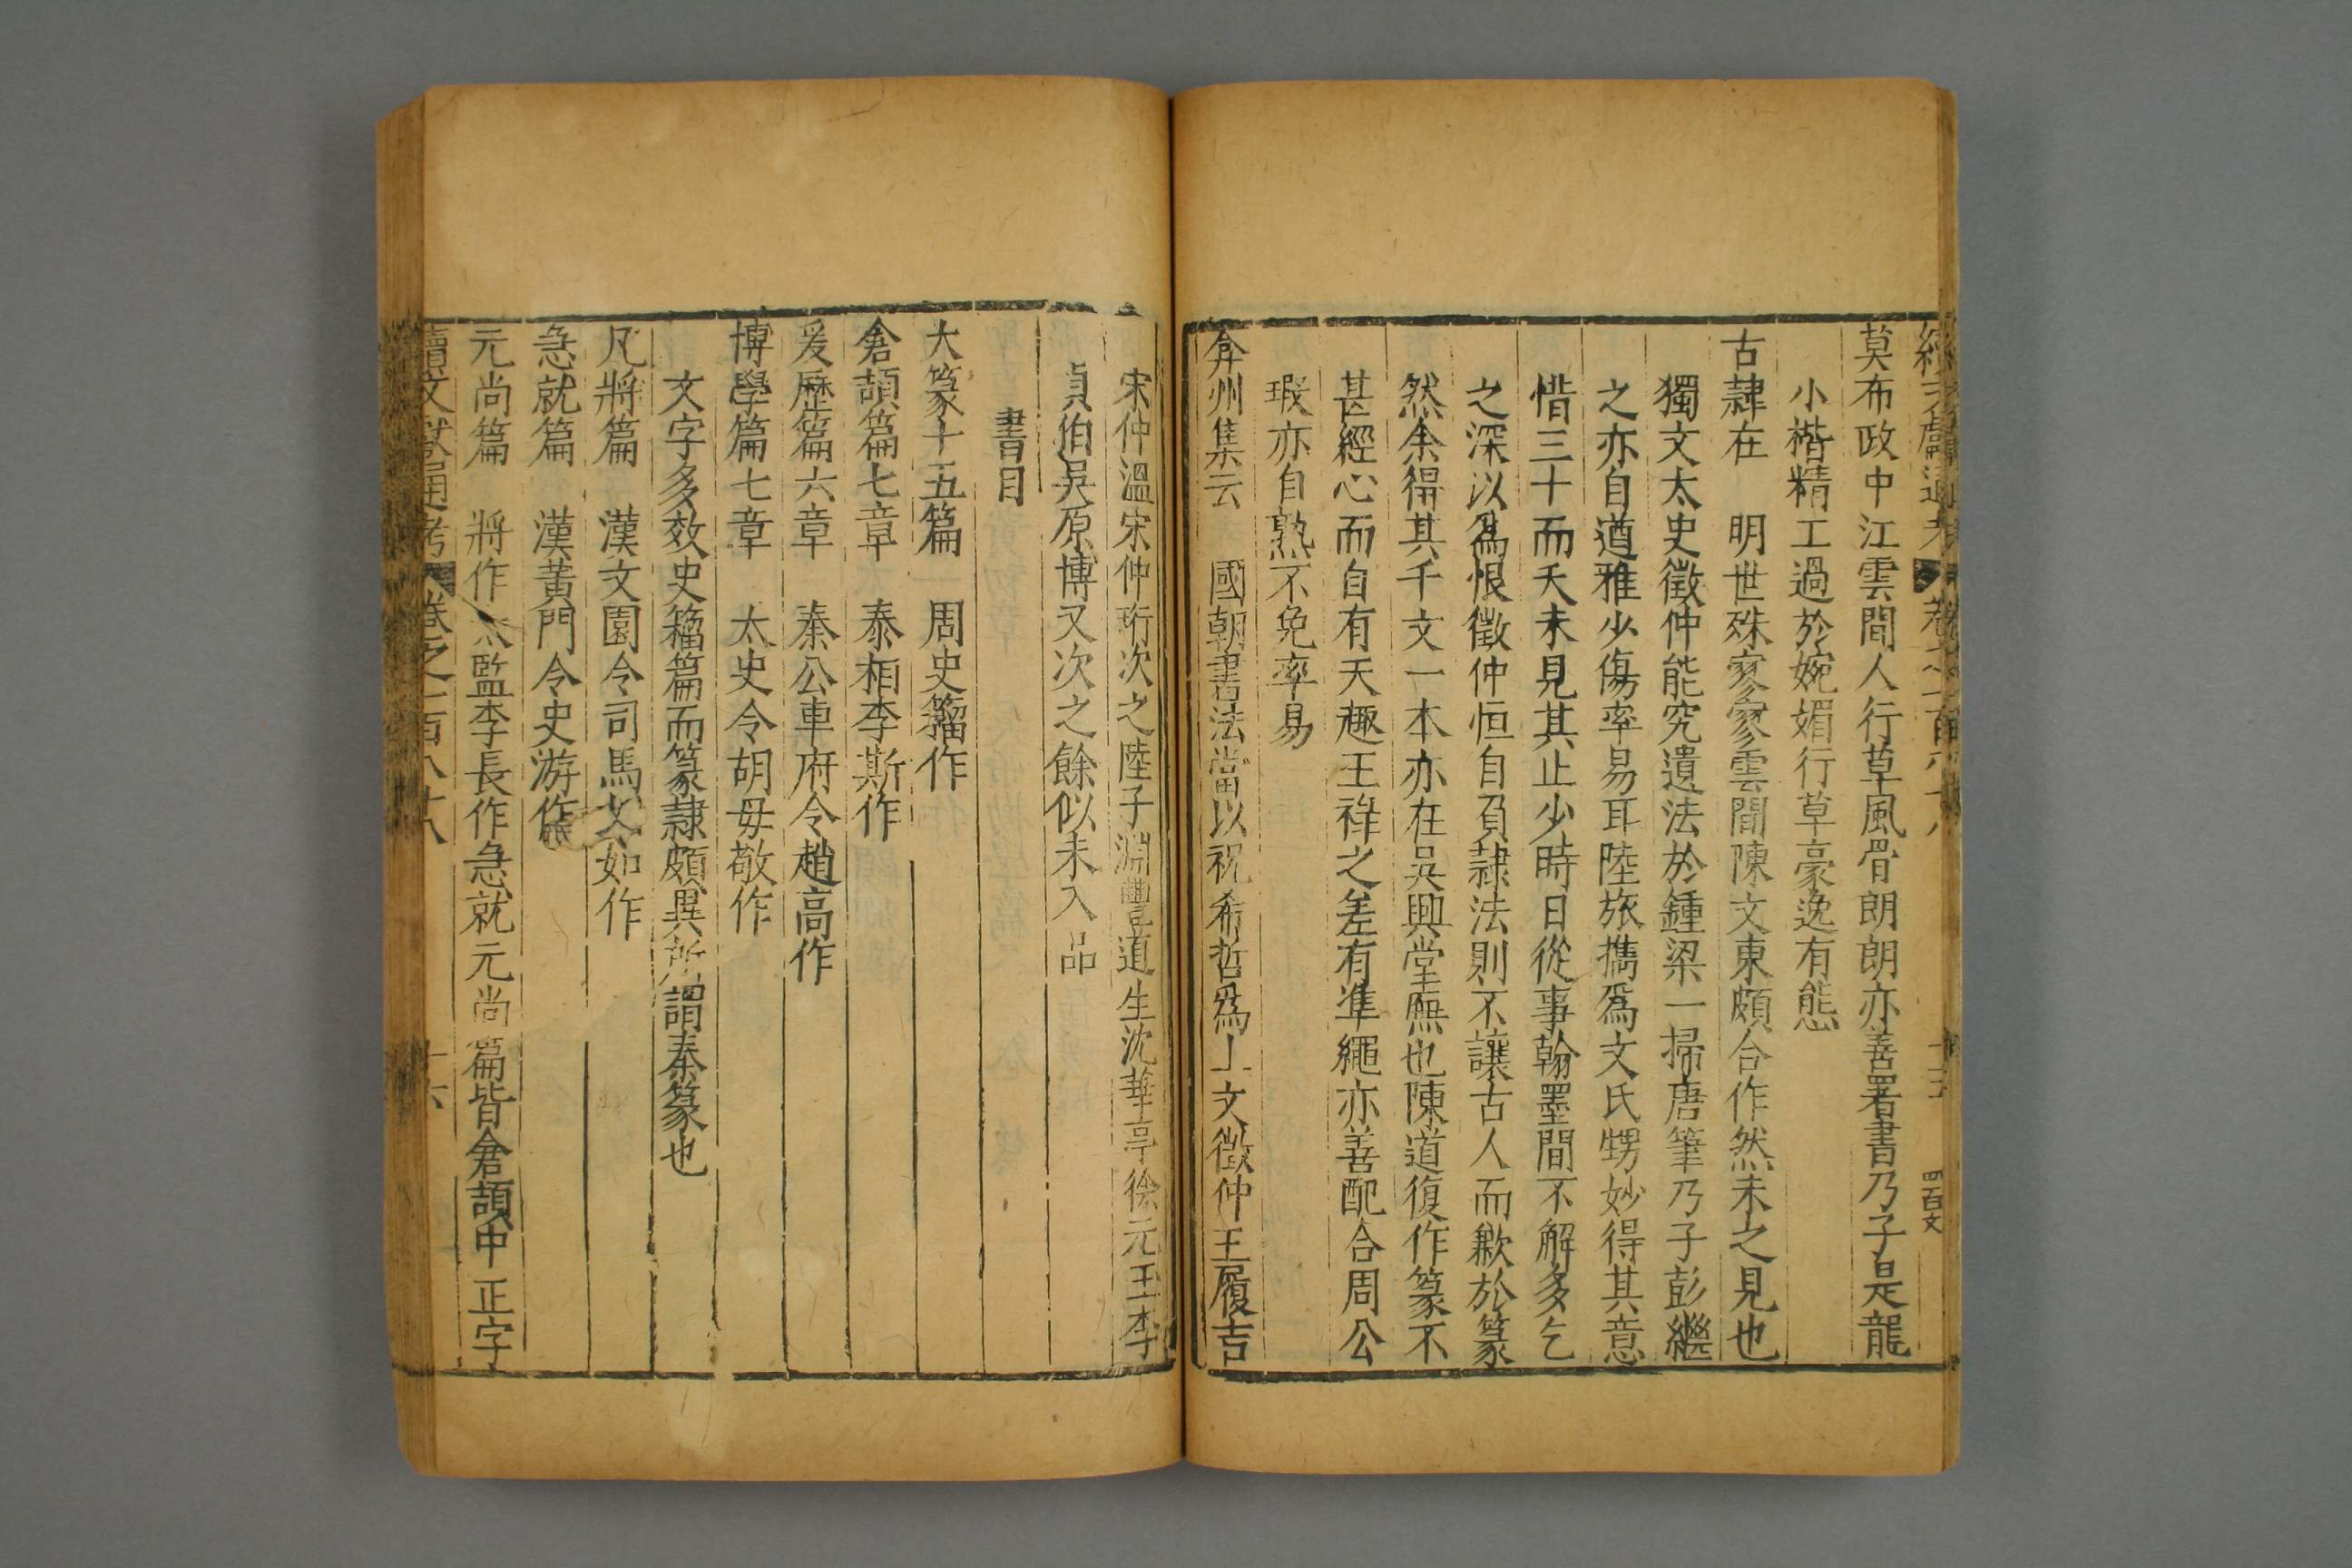 莫布政中江雲間人行草風骨朗朗亦善署書乃子是龍
小楷精工過於婉媚行草豪逸有態
古隷在　明世殊寥寥雲間陳文東頗合作然未之見也
獨文太史徵仲能究遺法於鍾梁一掃唐筆乃子彭繼
之亦自遒雅少傷率易耳陸旅擕爲文氏甥妙得其意
惜三十而夭未見其止少時日從事翰墨間不解多乞
之深以爲恨徵仲恒自負隷法則不讓古人而歉於篆
然余得其千文一本亦在吳興堂廡也陳道復作篆不
甚經心而自有天趣王祿之差有準繩亦善配合周公
瑕亦自熟不免率易
弇州集云　國朝書法當以祝希哲爲上文徵仲王履吉
宋仲溫宋仲珩次之陸子淵豐道生沈華亭徐元玉李
貞伯吳原博又次之餘似未入品
書目
大篆十五篇　周史籀作
倉頡篇七章　秦相李斯作
爰歷篇六章　秦公車府令趙高作
博學篇七章　太史令胡毋敬作
文字多效史籀篇而篆隷頗異所謂秦篆也
凡將篇　漢文園令司馬文如作
急就篇　漢黃門令史游作
元尚篇　將作大監李長作急就元尚篇皆倉頡中正字
續文獻通考　卷之一百八十八　十六